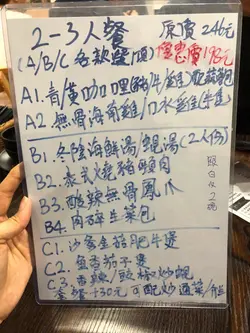 2-3人餐 原價246元
(A/B/C各款壹項) 優惠價198元
A1. 青/黃咖喱(豬/牛/雞)
A2. 無骨海南雞/口水雞(半隻)
B1. 冬陰海鮮湯/蜆湯(2人份)
B2. 泰式燒豬頸肉
B3. 酸辣無骨鳳爪
B4. 肉碎生菜包
跟白飯2碗
C1. 沙嗲金菇肥牛煲
C2. 魚香茄子煲
C3. 香辣/豉椒炒蜆
套餐+30元可配炒通菜/